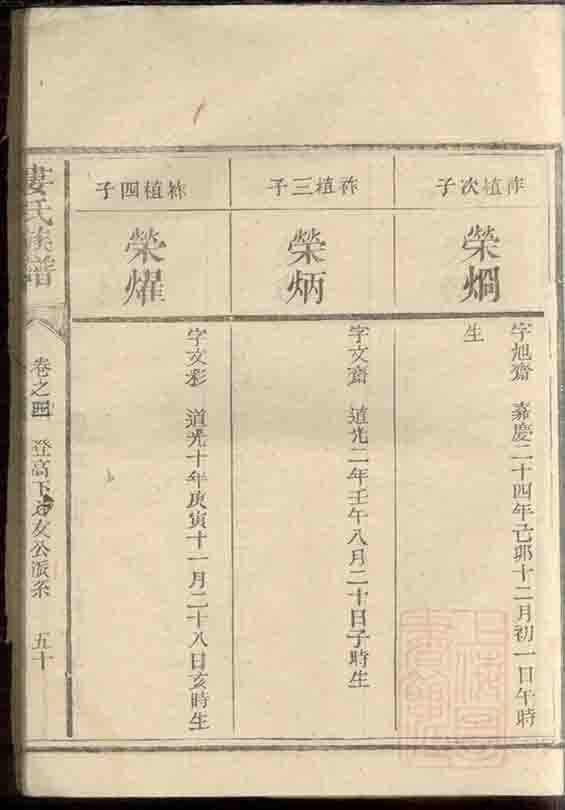 祚植次子
榮烱
字旭齋　嘉慶二十四年己卯十二月初一日午時
生
祚植三子
榮炳
字文齋　道光二年壬午八月二十日子時生
祚植四子
榮燿
字文彩　道光十年庚寅十一月二十八日亥時生
婁氏族譜
卷之四　登高下　友公派系　五十